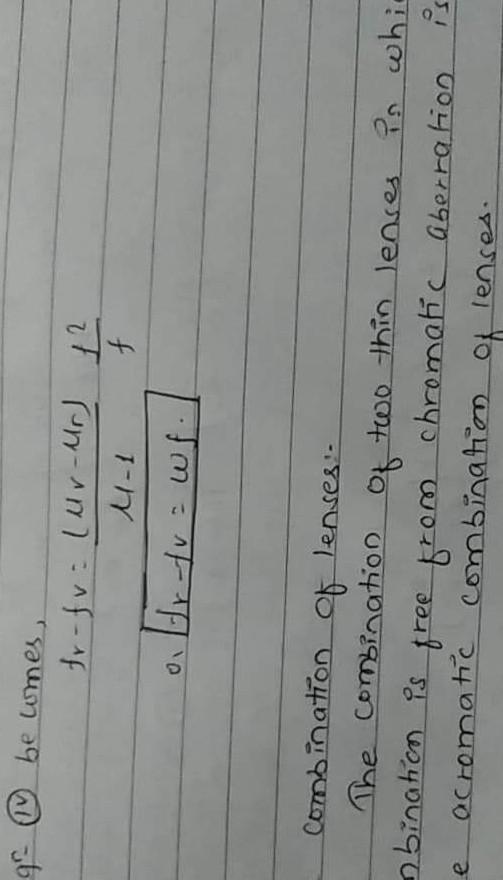 qⁿ- (IV) becomes,
fr - fv = (μv - μr) f²
μ-1 f
o, fr - fv = wf.
combination of lenses:-
The combination of two thin lenses in whi
nbination is free from chromatic aberration is
e acromatic combination of lenses.